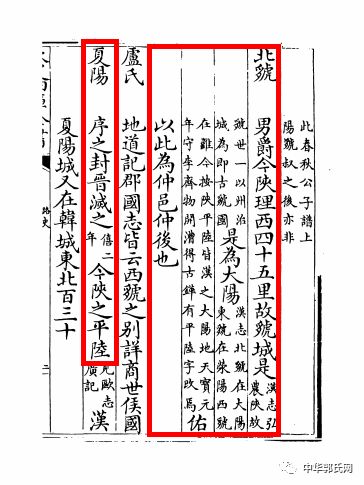 此春秋公子譜上
陽虢叔之後亦非
北虢 男爵今陝理西四十五里故虢城是漢志弘
農陝故
虢世一以州治
城為即古虢國是為大陽漢志北虢在大陽
東虢在滎陽西虢
在雍今按陝平陸皆漢之大陽地天寶元
年守李齊物開漕得古鏵有平陸字改焉佑
以此為仲邑仲後也
盧氏 地道記郡國志皆云西虢之別詳商世侯國
夏陽 序之封晉滅之僖二
年今陝之平陸歐志
廣記漢
夏陽城又在韓城東北百三十
路史
二
中华郭氏网